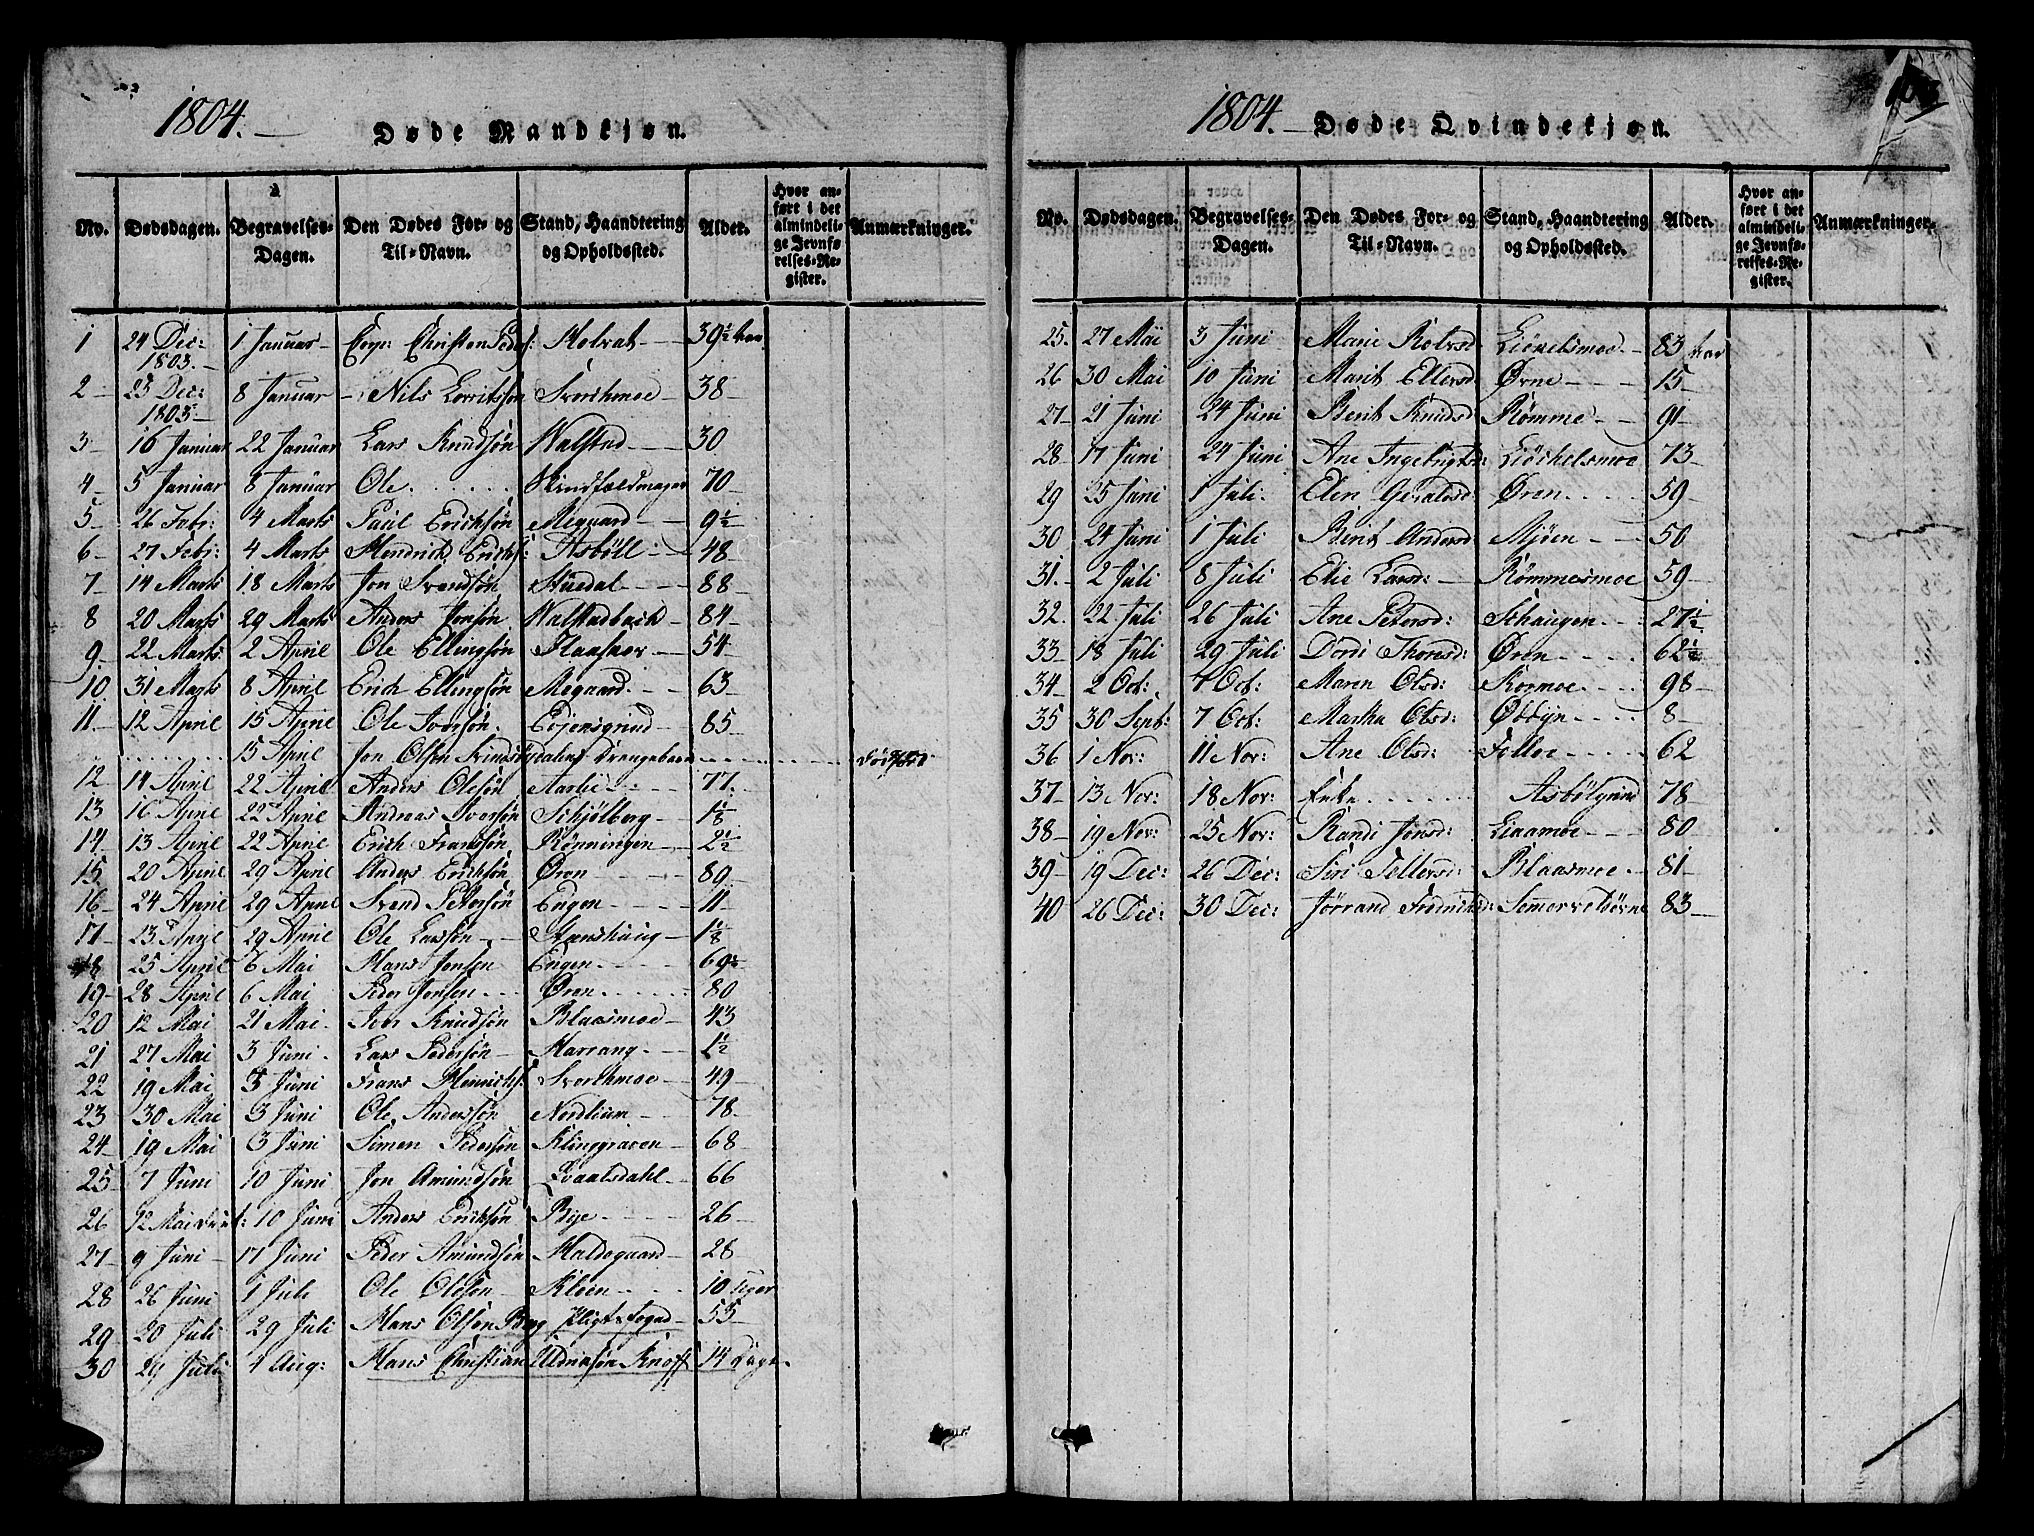 1804.
Døde Mandkjøn.
No. Dødsdagen. Begravelses-Dagen. Den Dødes For- og Til-Navn. Stand, Haandtering og Opholdssted. Alder. Hvor anført i det almindelige Jevnførelses-Register. Anmærkninger.
1 24 Dec: 1803. 1 Januar Christen Peders: Holvat 39½ Aar
2 23 Dec: 1803 8 Januar Nils Lorritssøn Svorkmoe 38
3 16 Januar 22 Januar Lars Knudsøn Walstad 30
4 5 Januar 8 Januar Ole 70
5 26 Febr: 4 Marts Paul Erichsøn Megaard 9½
6 27 Febr: 4 Marts Hendrich Erichs: Asbøll 48
7 14 Marts 18 Marts Jon Svendsøn Stuedal 88
8 20 Marts 29 Marts Anders Jonsøn Walstadbach 84
9 22 Marts 2 April Ole Ellingsøn 54
10 31 Marts 8 April Erich Ellingsøn Megaard 63
11 12 April 15 April Ole Iversøn 85
15 April Jon Olsøn Drengebarn dødfød
12 14 April 22 April Anders Olesøn Aarlie 77
13 16 April 22 April Andreas Iversøn Schjølberg 1⅛
14 13 April 22 April Erich Franssøn Rønningen 2½
15 20 April 29 April Anders Erichsøn Øren 89
16 24 April 29 April Svend Petersøn Engen 11
17 23 April 29 April Ole Larsøn 1⅛
18 25 April 6 Mai Hans Jonsen Engen 69½
19 28 April 6 Mai Peder Jonsen Øren 80
20 12 Mai 21 Mai Jon Knudsøn Blaasmoe 43
21 27 Mai 3 Juni Lars Pedersøn Harrang 1½
22 19 Mai 3 Juni Frans Henrichs: Svorchmoe 49
23 30 Mai 3 Juni Ole Andersøn Nordlium 78
24 19 Mai 3 Juni Simen Pedersøn Klinggraven 68
25 7 Juni 10 Juni Jon Amundsøn Evaalsdahl 66
26 12 Mai 10 Juni Anders Erichsøn Bye 26
27 9 Juni 17 Juni Peder Amundsøn Haldogaard 28
28 26 Juni 1 Juli Ole Olesøn Kleen 10 Uger
29 20 Juli 29 Juli Hans Olsen Berg 53
30 29 Juli 4 Aug: Hans Christian Knoff 14 Dage
1804.
Døde Qvindekjøn.
No. Dødsdagen. Begravelses-Dagen. Den Dødes For- og Til-Navn. Stand, Haandtering og Opholdssted. Alder. Hvor anført i det almindelige Jevnførelses-Register. Anmærkninger.
25 27 Mai 3 Juni Marie Liökelsmoe 83 Aar
26 30 Mai 10 Juni Marit Ellersd Ørne 15
27 21 Juni 24 Juni Berit Knudsd Rømme 91
28 17 Juni 24 Juni Ane Ingebrigtsd: Liöchelsmoe 73
29 25 Juni 1 Juli Elen Øren 59
30 24 Juni 1 Juli Berit Andersd Mjöen 50
31 2 Juli 8 Juli Elie Larsd: Rømmesmoe 59
32 22 Juli 26 Juli Ane Petersd: Schaugen 27½
33 18 Juli 29 Juli Dordi Thorsd: Øren 62½
34 2 Oct: 7 Oct: Maren Olsd: Kormoe 98
35 30 Sept: 7 Oct: Martha Olsd: 8
36 1 Nov: 11 Nov: Ane Olsd: 62
37 13 Nov: 18 Nov: Enke Asbölgrind 78
38 19 Nov: 25 Nov: Randi Jonsd: Liaamoe 80
39 19 Dec: 26 Dec: Siri Tellersd: Blaasmoe 81
40 26 Dec: 30 Dec: Jörrand 83
103